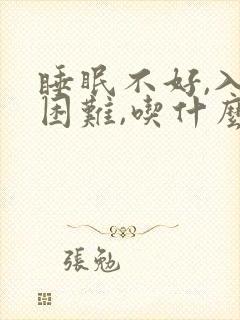 睡眠不好,入
困難,喫什麼
張勉